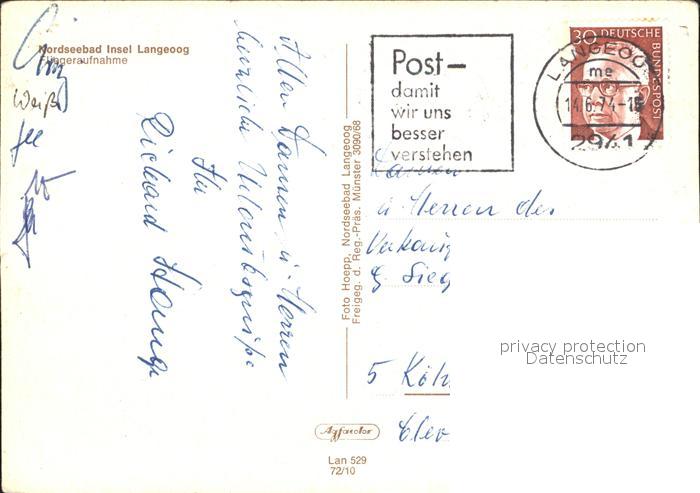 Nordseebad Insel Langeoog
Fliegeraufnahme
Allen Damen u. Herren
herzliche Urlaubsgrüße
Ihr
Richard
Foto Hoepp, Nordseebad Langeoog
Freigeg. d. Reg.-Präs. Münster 3090/68
Post—
damit
wir uns
besser
verstehen
30 DEUTSCHE
BUNDESPOST
LANGEOOG
me
14.6.74-18
2941
Damen
u. Herren der
5 Köln
privacy protection
Datenschutz
Agfacolor
Lan 529
72/10